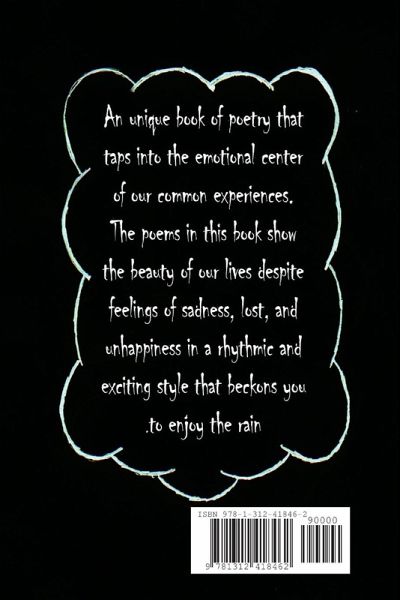 An unique book of poetry that
taps into the emotional center
of our common experiences.
The poems in this book show
the beauty of our lives despite
feelings of sadness, lost, and
unhappiness in a rhythmic and
exciting style that beckons you
.to enjoy the rain
ISBN 978-1-312-41846-2
90000
9 781312 418462